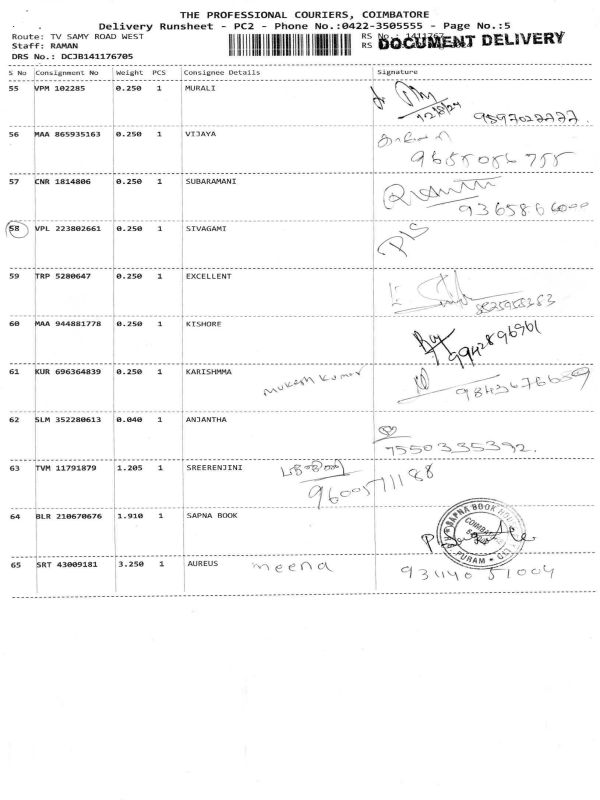 THE PROFESSIONAL COURIERS, COIMBATORE
Delivery Runsheet - PC2 - Phone No.:0422-3505555 - Page No.:5
Route: TV SAMY ROAD WEST RS No.: 1411767
Staff: RAMAN RS DOCUMENT DELIVERY
DRS No.: DCJB141176705
S No Consignment No Weight PCS Consignee Details Signature
55 VPM 102285 0.250 1 MURALI
12/8/24 9597022777.
56 MAA 865935163 0.250 1 VIJAYA
9655086755
57 CNR 1814806 0.250 1 SUBARAMANI
9365866000
58 VPL 223802661 0.250 1 SIVAGAMI P/S
59 TRP 5280647 0.250 1 EXCELLENT
60 MAA 944881778 0.250 1 KISHORE
9942896961
61 KUR 696364839 0.250 1 KARISHMMA Mukesh Kumar
9843676659
62 SLM 352280613 0.040 1 ANJANTHA
7550335392.
63 TVM 11791879 1.205 1 SREERENJINI
9600571188
64 BLR 210670676 1.910 1 SAPNA BOOK
SAPNA BOOK COIMBATORE PURAM
65 SRT 43009181 3.250 1 AUREUS meena